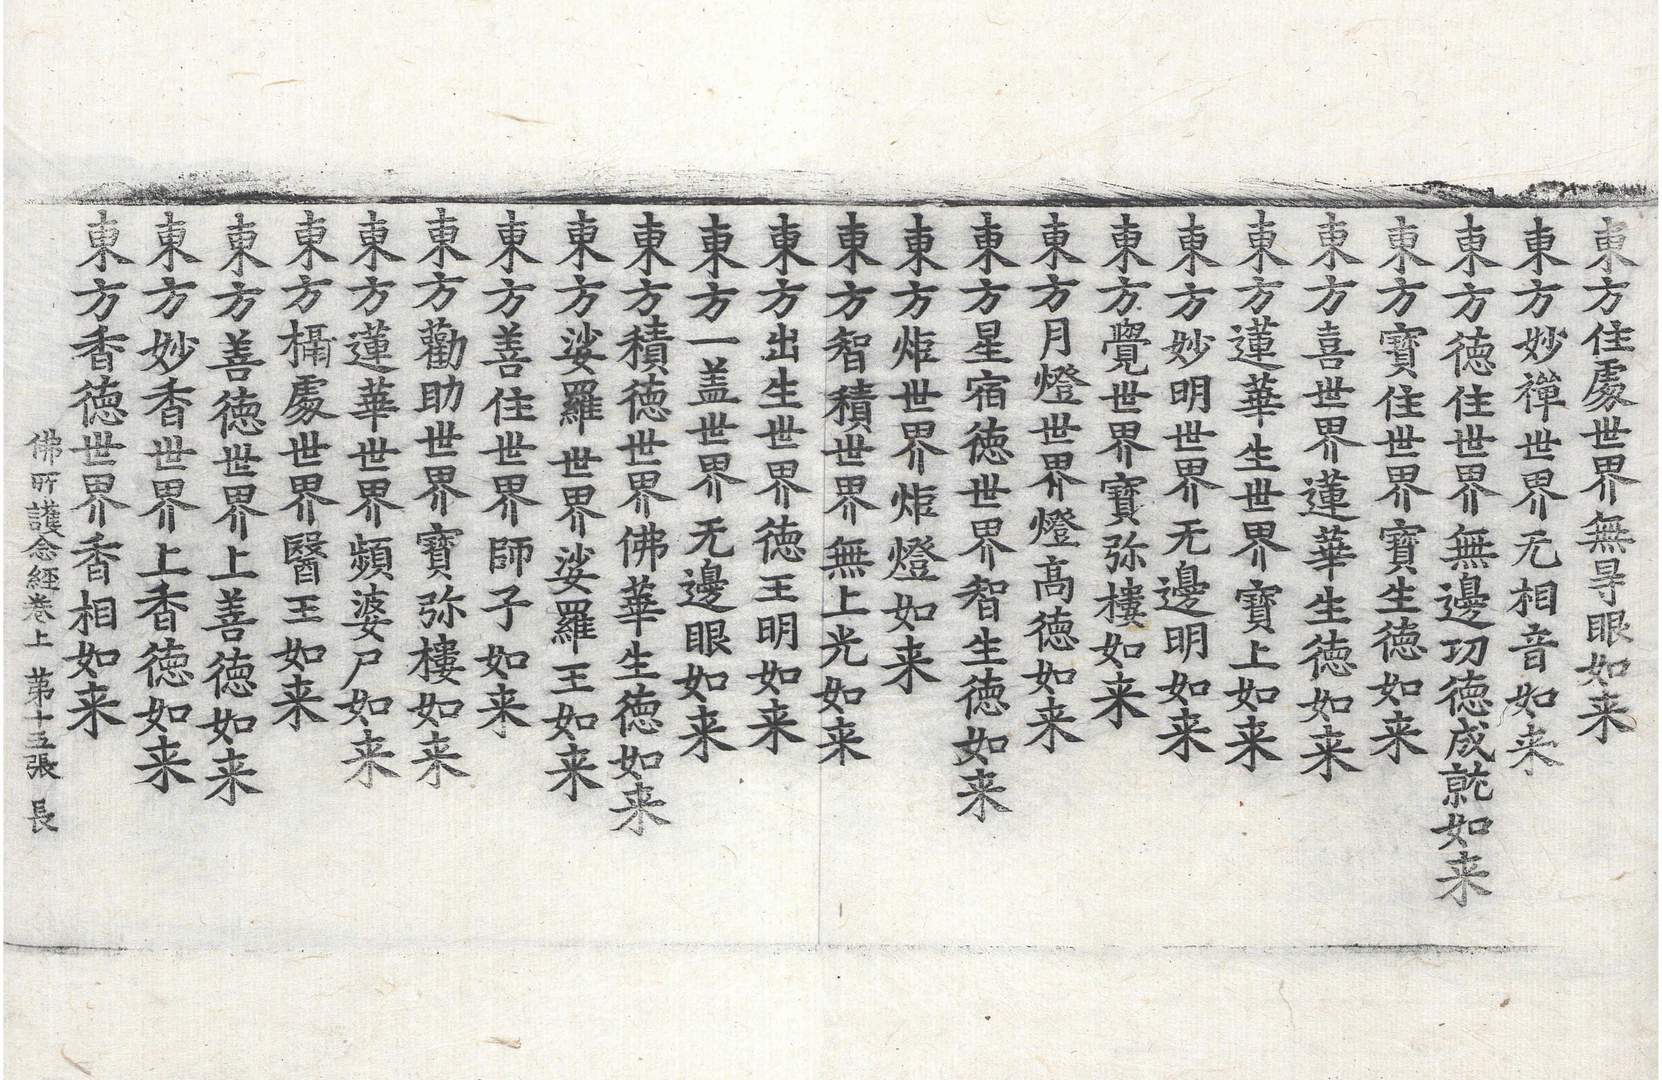 東方住處世界無㝵眼如来
東方妙禪世界无相音如来
東方德住世界無邊功德成就如来
東方寶住世界寶生德如来
東方喜世界蓮華生德如来
東方蓮華生世界寶上如来
東方妙明世界无邊明如来
東方覺世界寶弥樓如来
東方月燈世界燈高德如来
東方星宿德世界智生德如来
東方炬世界炬燈如来
東方智積世界無上光如来
東方出生世界德王明如来
東方一盖世界无邊眼如来
東方積德世界佛華生德如来
東方娑羅世界娑羅王如来
東方善住世界師子如来
東方勸助世界寶弥樓如来
東方蓮華世界頻婆尸如来
東方攝處世界醫王如来
東方善德世界上善德如来
東方妙香世界上香德如来
東方香德世界香相如来
佛所護念經卷上 苐十五張 長